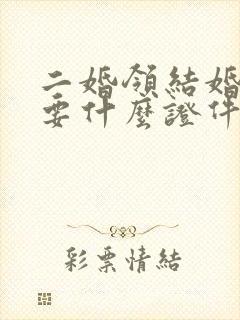 二婚領結婚
要什麼證件
彩票情結